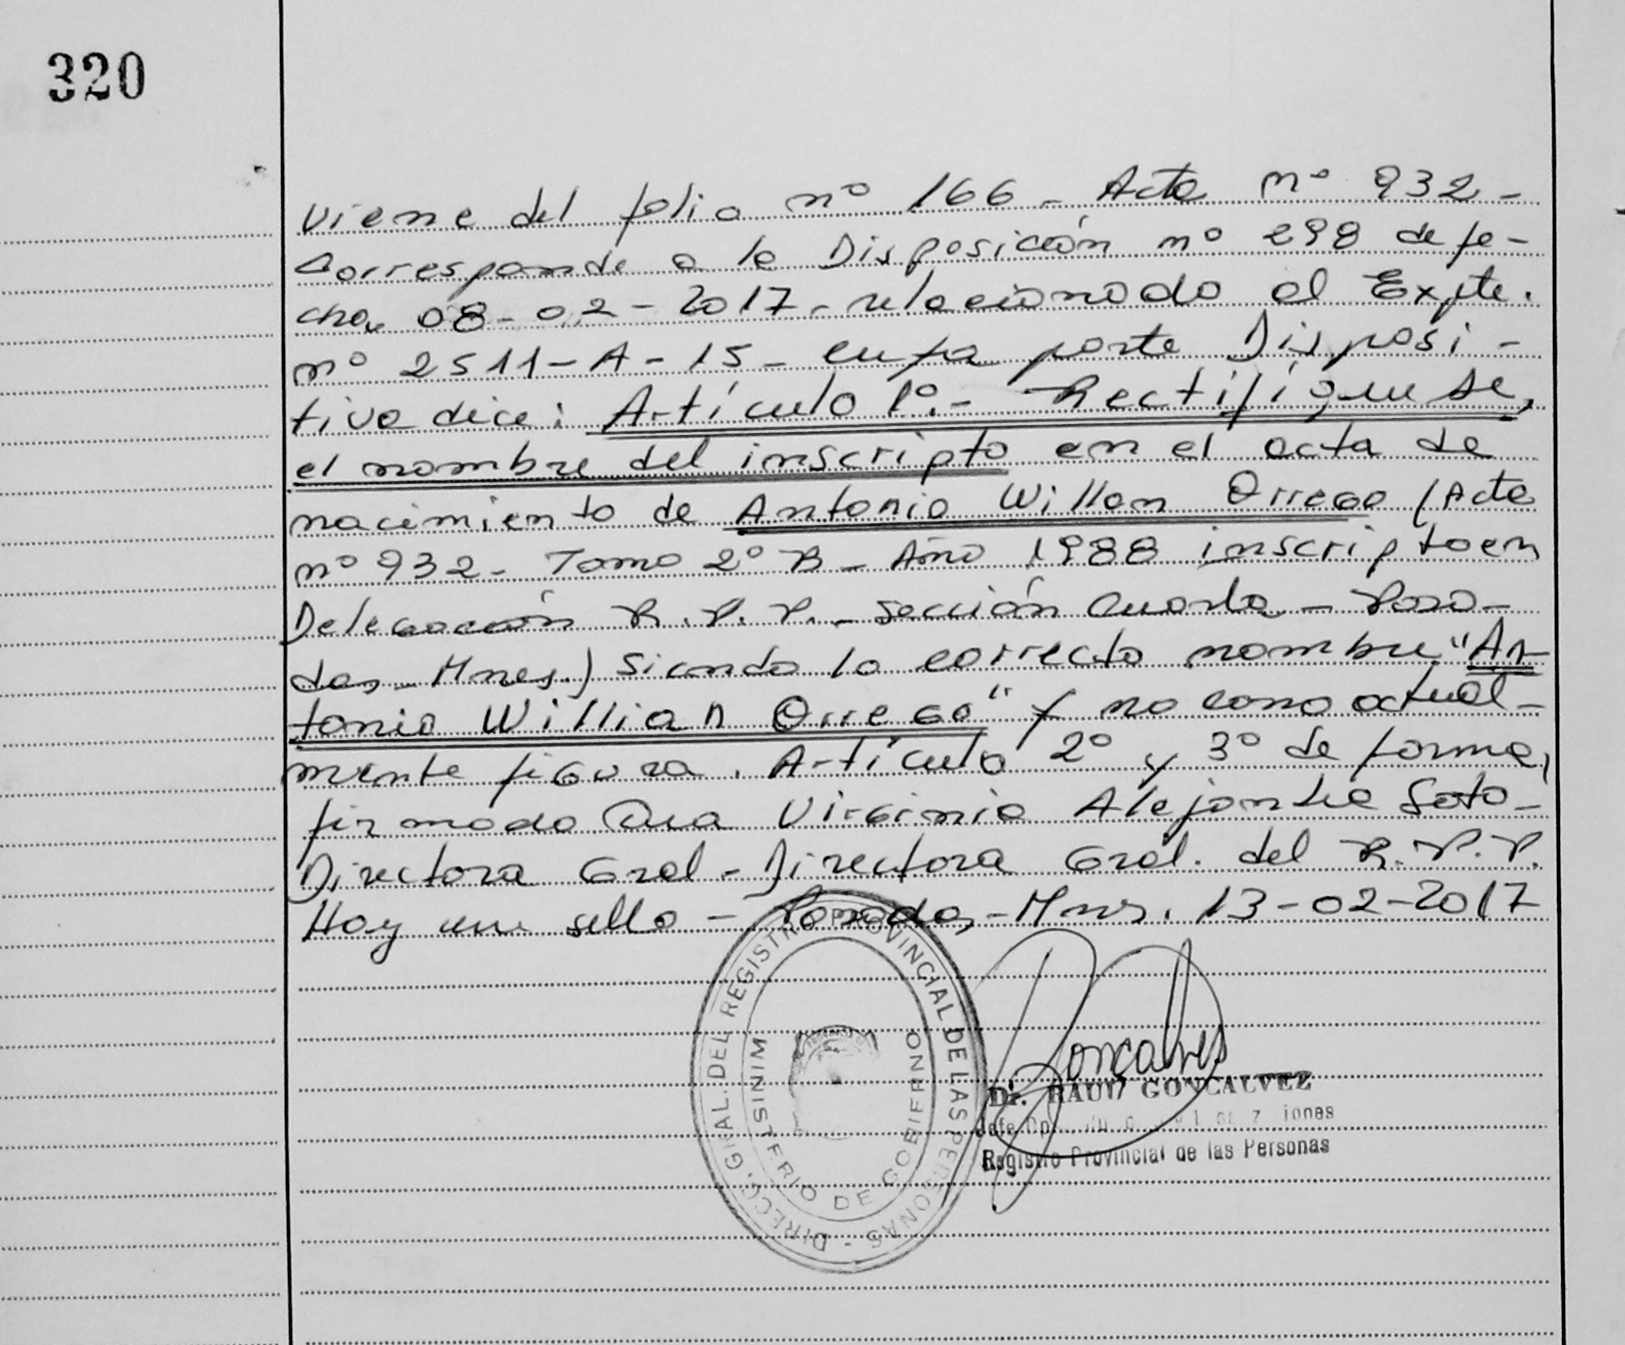 320
Viene del folio nº 166 - Acta nº 932 -
Corresponde a la Disposición nº 298 de fe-
cha 08-02-2017 - relacionado al Expte.
nº 2511-A-15 - cuya parte Disposi-
tiva dice: Artículo 1º.- Rectifíquese,
el nombre del inscripto en el acta de
nacimiento de Antonio Willan Orrego (Acta
nº 932 - Tomo 2º B - Año 1988 inscripto en
Delegación R.P.P. - Sección Cuarta - Posa-
das - Mnes.) siendo lo correcto nombre "An
tonio Willian Orrego" y no como actual-
mente figura. Artículo 2º y 3º de forma,
firmado Dra Virginia Alejandra Soto -
Directora Gral - Directora Gral. del R.P.P.
Hay un sello - Posadas - Mnes. 13-02-2017
DIRECC. GRAL. DEL REGISTRO PROVINCIAL DE LAS PERSONAS -
MINISTERIO DE GOBIERNO
Goncalves
Dr. RAUL GONCALVEZ
Jefe Dpt.
Registro Provincial de las Personas